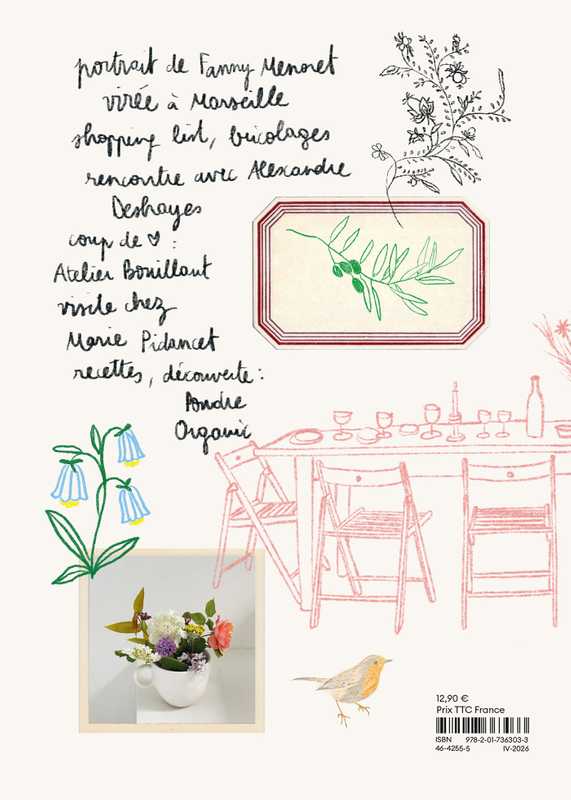 portrait de Fanny Menoret
virée à Marseille
shopping list, bricolages
rencontre avec Alexandre
Deshayes
coup de ♥ :
Atelier Bouillant
visite chez
Marie Pidancet
recettes, découverte :
Poudre
Organic
12,90 €
Prix TTC France
ISBN 978-2-01-736303-3
46-4255-5 IV-2026